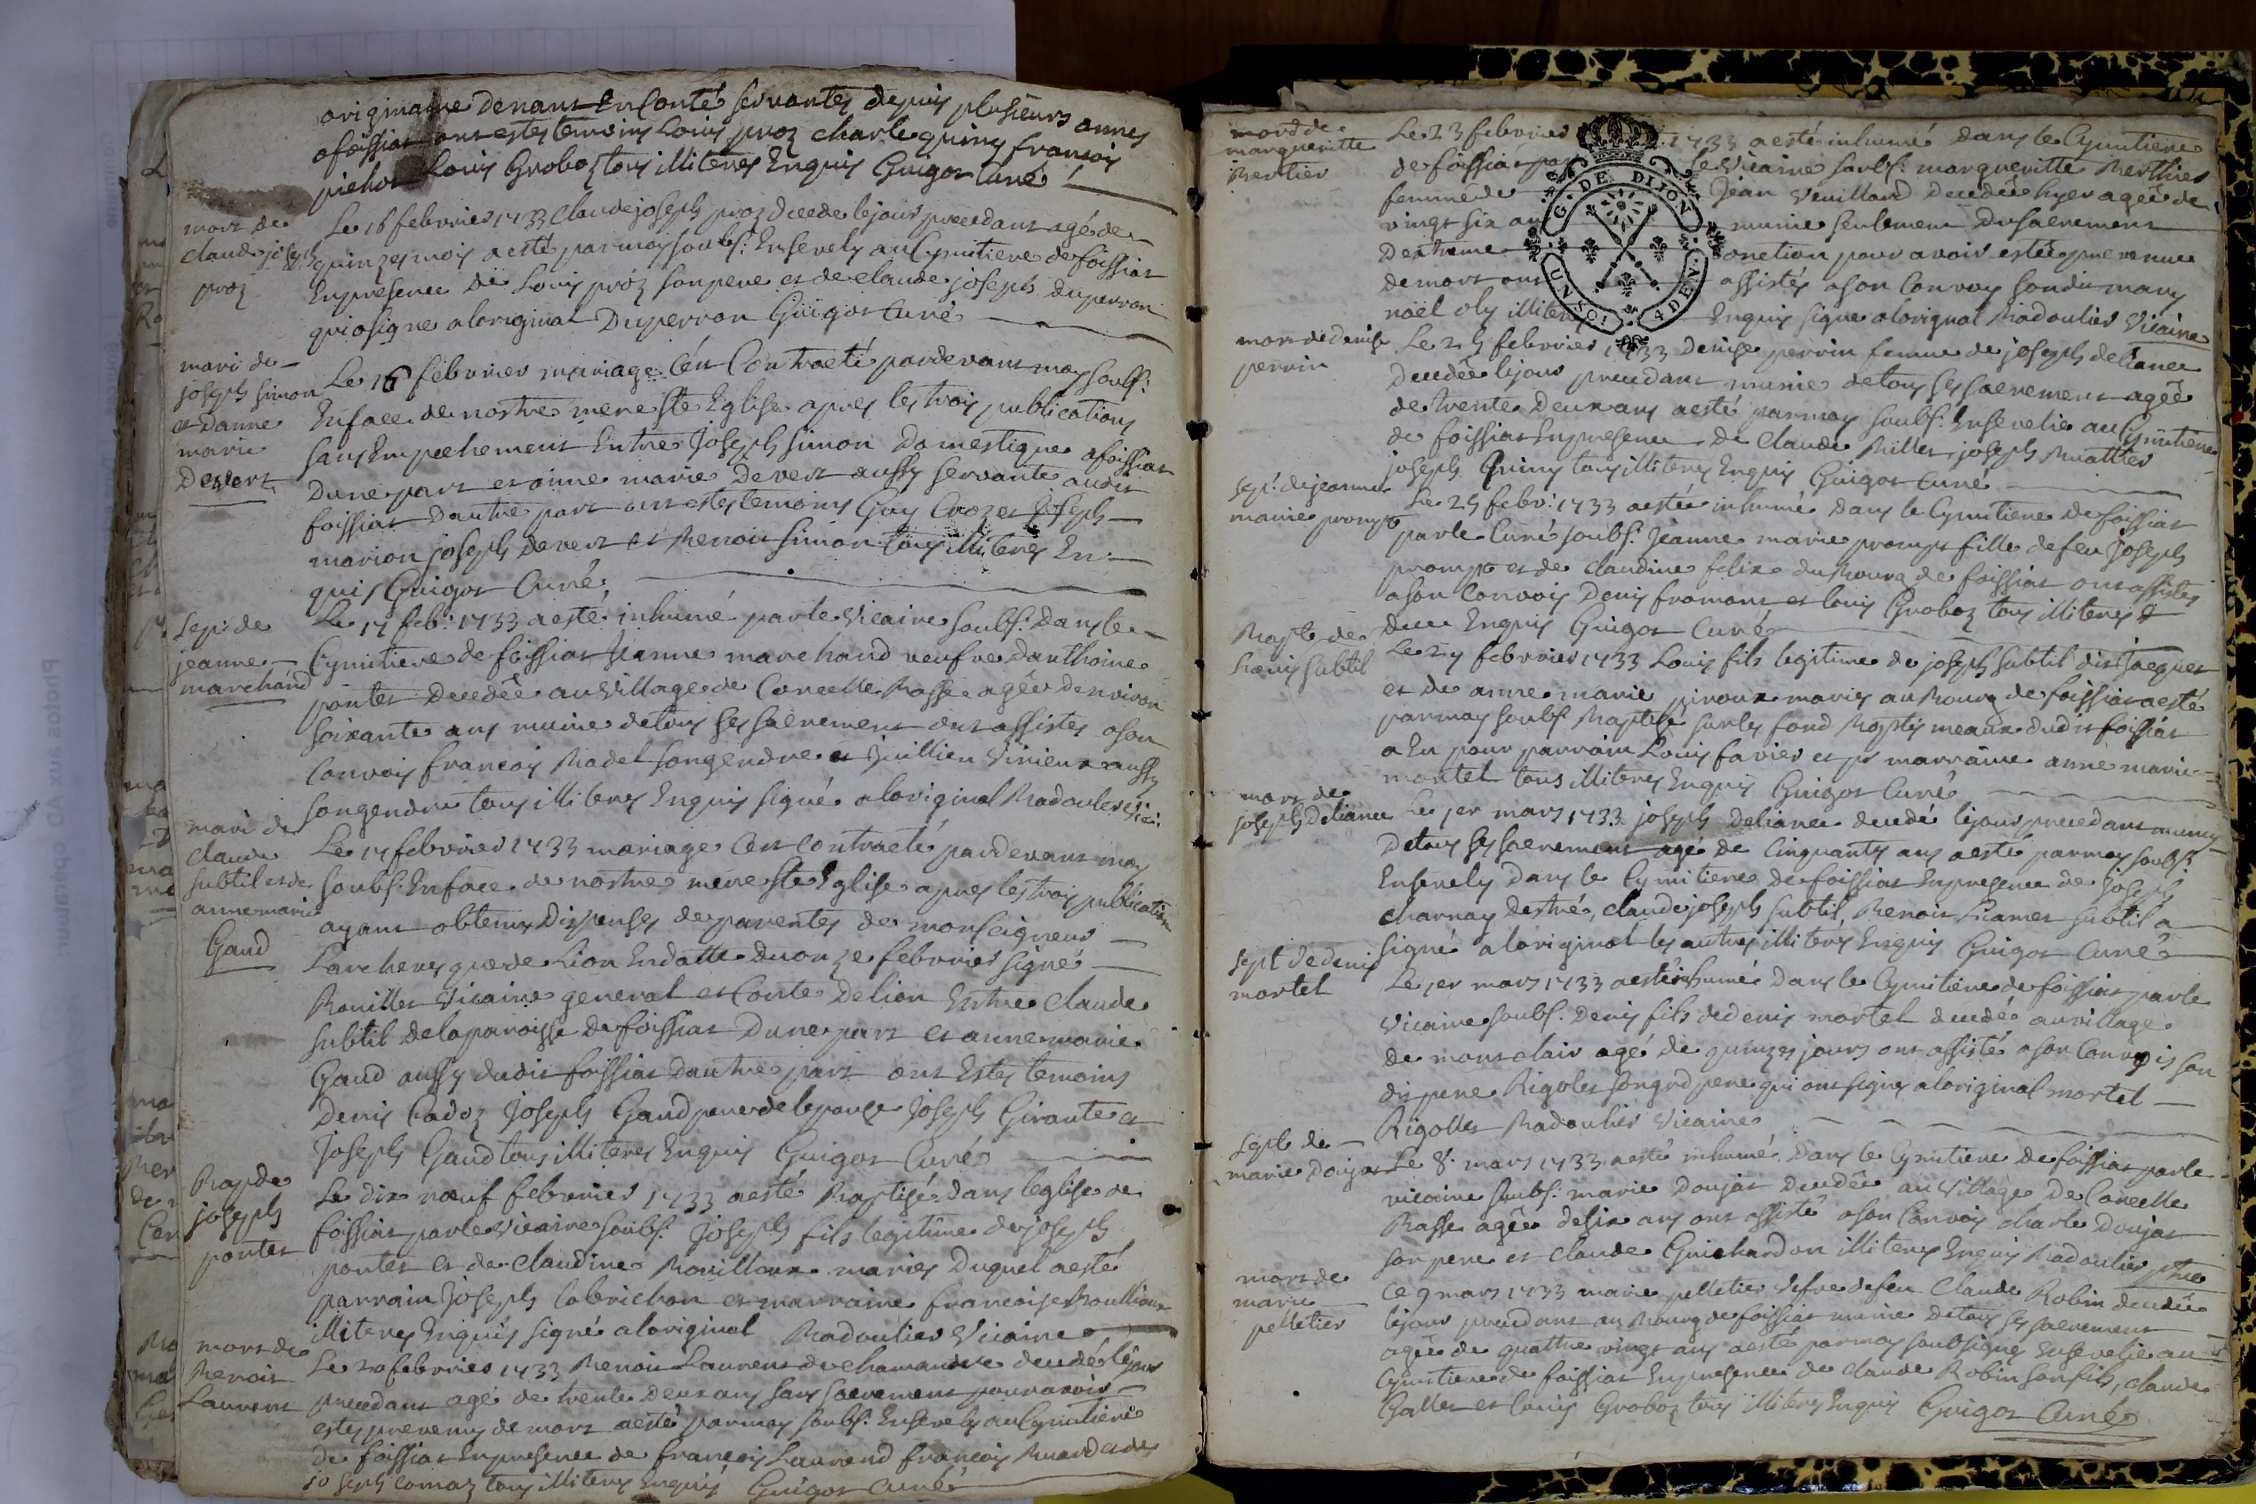 originaire de nant En Conté servantes depuis plusieurs annes
a foissiat ont estes temoins Louis proz charle quiny francois
pichot Louis Groboz tous illiteres Enquis Guigot Curé
mort de
claude joseph
proz
Le 16 febvrier 1733 Claude joseph proz decede le jour precedant agé de
quinzes mois a esté par moy soubs: Ensevely au Cymitiere de foissiat
En presence de Louis proz son pere et de claude joseph duperron
qui a signe a loriginal Duperron Guigot Curé
mari de
joseph simon
et danne
marie
Devert
Le 16 febvrier mariage C'est Contracté pardevant moy soubs:
En face de nostre mere ste Eglise apres les trois publications
sans Empechement Entre Joseph simon Domestique a foissiat
Dune part et anne marie Devert aussy servante audit
foissiat Dautre part ont estes temoins Guy Crozet Joseph
marion joseph Devert et Benoit simon tous illiteres En
quis Guigot Curé
sep: de
jeanne
marchand
Le 17 feb: 1733 a esté inhumé par le Vicaire soubs: Dans le
Cymitiere de foissiat Jeanne marchand veufve danthoine
pontet Decedée au Village de Concelle Basse agée denviron
soixante ans munie de tous ses sacrement ont assistes a son
Convois francois Badel son gendre et Guillien Vinieux aussy
son gendre tous illiteres Enquis signé a loriginal Badoulier Vic:
mari de
claude
subtil et de
anne marie
Gaud
Le 17 febvrier 1733 mariage C'est Contracté pardevant moy
soubs: En face de nostre mere ste Eglise apres les trois publication
ayant obtenus Dispenses de parentes de monseigneur
Larcheveque de Lion En datte du onze febvrier signé
Rouillet Vicaire general et Conte De lion Entre Claude
subtil de la paroisse de foissiat Dune part et anne marie
Gaud aussy dudit foissiat Dautre part ont Estes temoins
Denis Cadoz Joseph Gaud pere de lepouse Joseph Girante et
Joseph Gaud tous illiteres Enquis Guigot Curé
Bap de
joseph
pontet
Le dix neuf febvrier 1733 a esté Baptisé dans leglise de
foissiat par le Vicaire soubs: Joseph fils legitime de joseph
pontet et de Claudine Rouilloux maries Duquel a esté
parrain Joseph Cabrichon et marraine francoise Rouilloux
illiteres Enquis signé a loriginal Badoulier Vicaire
mort de
Benoit
Laurent
Le 20 febvrier 1733 Benoit Laurent de chamandre decedé le jour
precedant agé de trente deux ans sans sacrement pour avoir
estes prevenus de mort a esté par moy soubs: Ensevely au Cymitiere
de foissiat En presence de francois Laurend francois Buard et de
joseph Comaz tous illiteres Enquis Guigot Curé
mord de
margueritte
Bertier
Le 23 febvrier 1733 a esté inhumé Dans le Cymitiere
de foissiat par le Vicaire soubs: margueritte Berthier
femme de Jean Veuillard Decedée hyer agée de
vingt six ans munie seulement Du sacrement
Dextreme onction pour avoir estée prevenue
de mort ont assistés a son Convoy sondit mary
noël oly illiteres Enquis signe a loriginal Badoulier Vicaire
G. DE. DIJON
UN SOL 4 DE.V.
mort de denise
perrin
Le 25 febvrier 1733 Denise perrin femme de joseph deliance
Decedée le jour precedant munie de tous ses sacrement agée
de trente Deux ans a esté par moy soubs: Ensevelie au Cymitiere
de foissiat En presence de Claude Millet joseph Buattier
joseph Quiny tous illiteres Enquis Guigot Curé
sep: de jeanne
marie prompt
Le 25 febv: 1733 a estée inhumé Dans le Cymitiere de foissiat
par le Curé soubs: Jeanne marie prompt fille de feu Joseph
prompt et de Claudine felix du Bourg de foissiat ont assistes
a son Convois Denis fromont et Louis Groboz tous illiteres &
deu Enquis Guigot Curé
Bapt de
Louis subtil
Le 27 febvrier 1733 Louis fils legitime de joseph subtil dit Jacquet
et de anne marie piroux maries au Bourg de foissiat a esté
par moy soubs: Baptisé sur les fond Baptismeaux dudit foissiat
a Eu pour parrain Louis favier et pr marraine anne marie
montel tous illiteres Enquis Guigot Curé
mort de
joseph Deliance
Le 1er mars 1733 joseph Deliance decedé le jour precedant muny
De tous ses sacrement agé de Cinquante ans a esté par moy soubs:
Ensevely Dans le Cymitiere De foissiat En presence de Joseph
charnay destré, claude joseph subtil, Benoit Liamet subtil a
signé a loriginal les autres illiteres Enquis Guigot Curé
sept de denis
mortel
Le 1er mars 1733 a esté inhumé Dans le Cymitiere de foissiat par le
Vicaire soubs: Denis fils de denis mortel decedé au village
De montclair agé de quinzes jours ont assisté a son Convois son
dit pere Rigolet son grd pere qui ont signes a loriginal mortel
Rigollet Badoulier Vicaire
sept de
marie Doujat
Le 8: mars 1733 a esté inhumé Dans le Cymitiere De foissiat par le
vicaire soubs: marie Doujat Decedée au Village De Concelle
Basse agée de six ans ont assisté a son Convois charle Doujat
son pere et claude Guichardon illiteres Enquis Badoulier ptre
mort de
marie
pelletier
Ce 9 mars 1733 marie pelletier vefve de feu Claude Robin decedée
le jour precedant au Bourg de foissiat munie De tous ses sacrement
agée de quattre vingt ans a esté par moy soubsigné Ensevelie au
Cymitiere de foissiat En presence de claude Robin son fils, claude
Gallet et Louis Groboz tous illiteres Enquis Guigot Curé